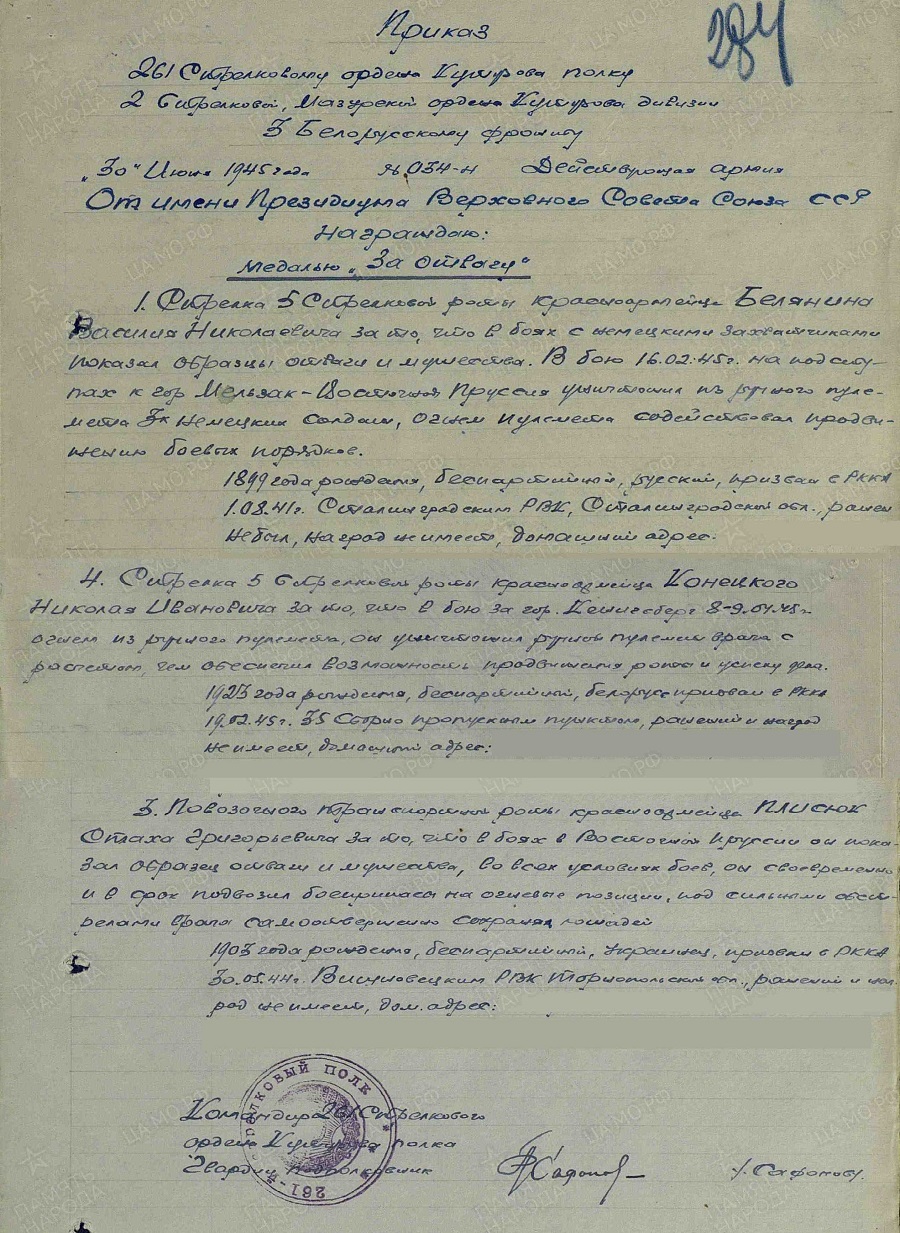 284
Приказ
261 Стрелковому ордена Кутузова полку
2 Стрелковой, Мазурской ордена Кутузова дивизии
3 Белорусскому фронту
„30" Июня 1945 года № 034-н Действующая армия
От имени Президиума Верховного Совета Союза ССР
Награждаю:
Медалью „За отвагу"
1. Стрелка 5 Стрелковой роты красноармейца Белянина
Василия Николаевича за то, что в боях с немецкими захватчиками
показал образцы отваги и мужества. В бою 16.02.45г. на подсту-
пах к гор. Мельзак-Восточная Пруссия уничтожил из ручного пуле-
мета 3х немецких солдат, огнем пулемета содействовал продви-
жению боевых порядков.
1899 года рождения, беспартийный, русский, призван в РККА
1.08.41г. Сталинградским РВК, Сталинградской обл., ранен
не был, наград не имеет, домашний адрес:
4. Стрелка 5 Стрелковой роты красноармейца Конецкого
Николая Ивановича за то, что в бою за гор. Кенигсберг 8-9.04.45г
огнем из ручного пулемета, он уничтожил ручной пулемет врага с
расчетом, чем обеспечил возможность продвижения роты и успеху дела.
1923 года рождения, беспартийный, белорус призван в РККА
19.02.45г. 35 Сборно пропускным пунктом, ранений и наград
не имеет, домашний адрес:
3. Повозочного транспортной роты красноармейца Плисюк
Остаха Григорьевича за то, что в боях в Восточной Пруссии он пока-
зал образец отваги и мужества, во всех условиях боев, он своевременно
и в срок подвозил боеприпасы на огневые позиции, под сильными обст-
релами врага самоотверженно сохранял лошадей
1903 года рождения, беспартийный, украинец, призван в РККА
30.05.44г. Вишновецким РВК Тарнопольской обл., ранений и наг-
рад не имеет, дом. адрес:
Командир 261 Стрелкового
ордена Кутузова полка
Гвардии подполковник Сафонов /Сафонов/.
261-й стрелковый полк